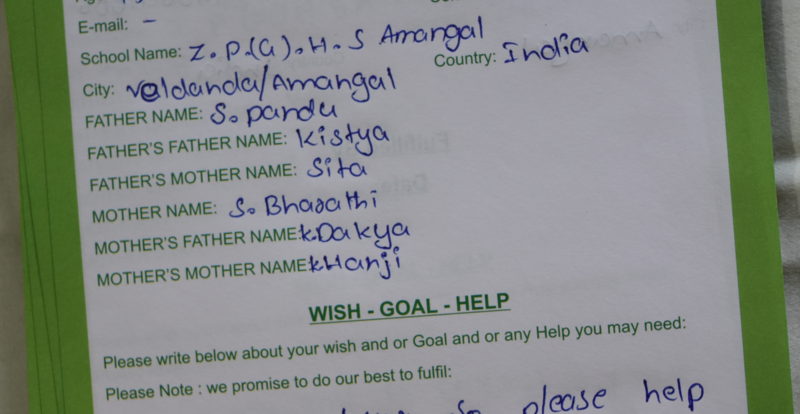 E-mail: –
School Name: Z.P.(G).H.S Amangal
Country: India
City: Veldanda/Amangal
FATHER NAME: S. pandu
FATHER'S FATHER NAME: Kistya
FATHER'S MOTHER NAME: Sita
MOTHER NAME: S. Bharathi
MOTHER'S FATHER NAME: k.Dakya
MOTHER'S MOTHER NAME: k.Hanji
WISH - GOAL - HELP
Please write below about your wish and or Goal and or any Help you may need:
Please Note : we promise to do our best to fulfil:
please help